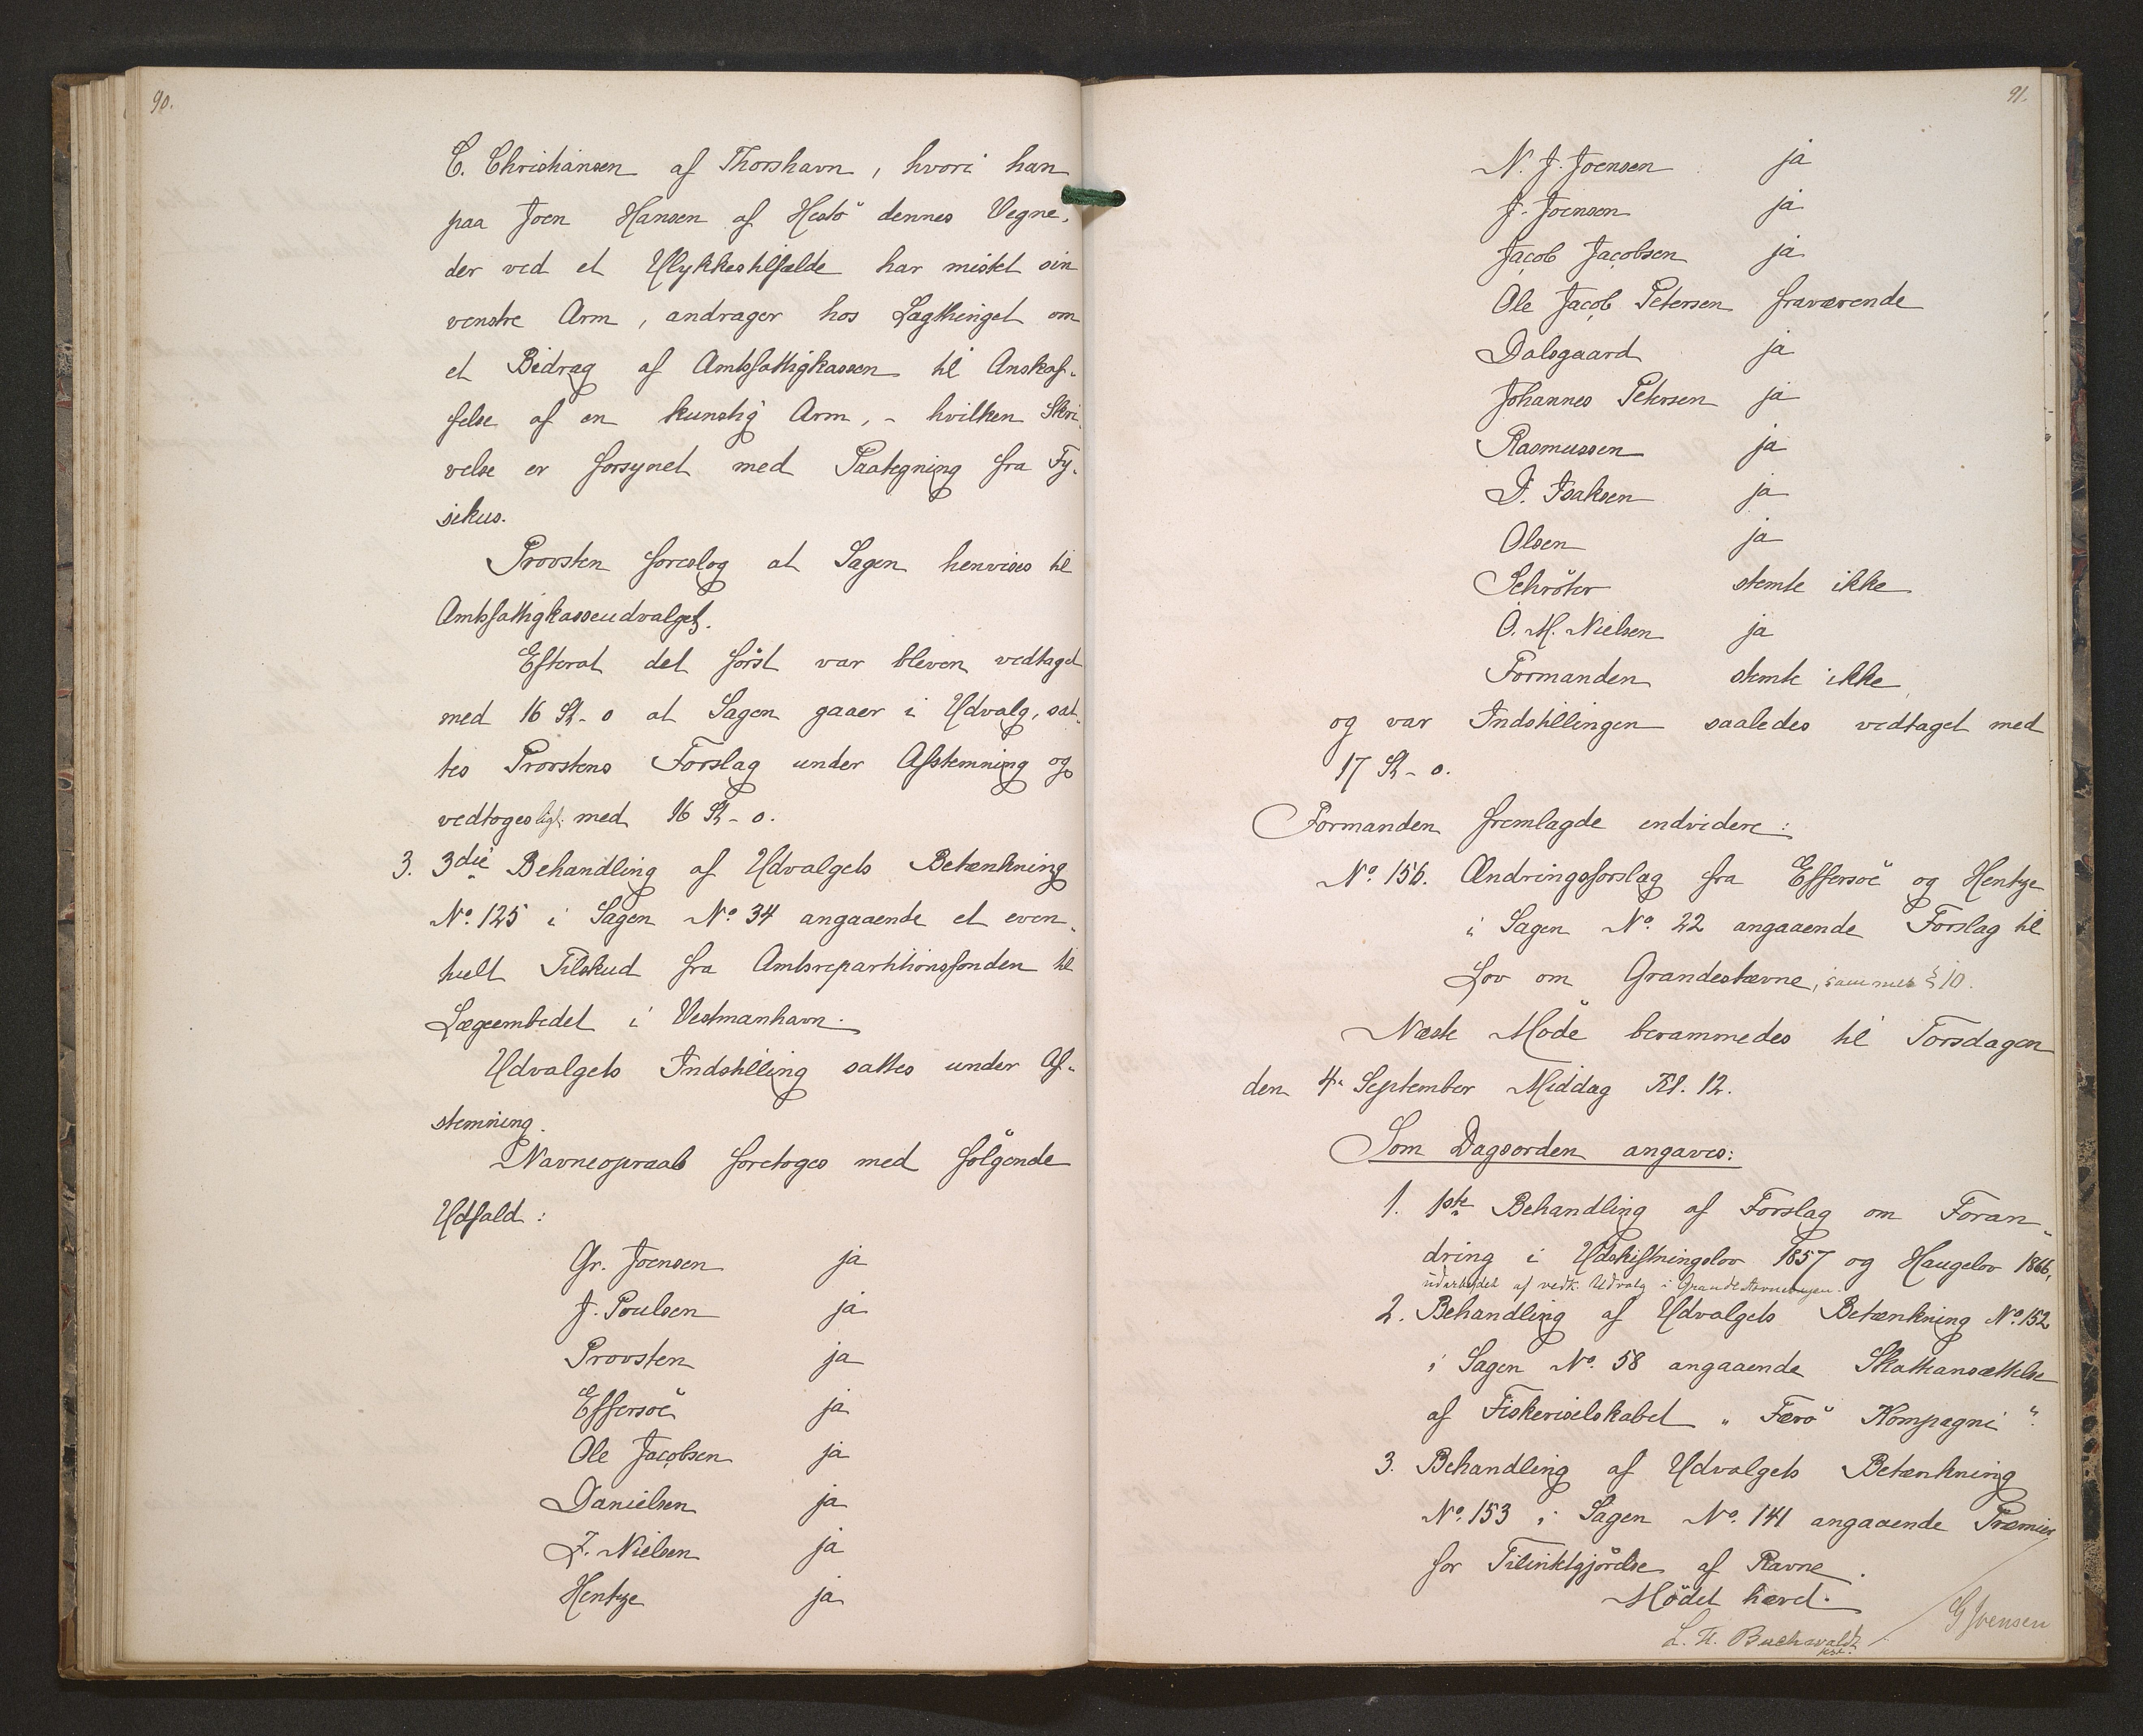 90.
C. Christiansen af Thorshavn, hvori han
paa Joen Hansen af Hestö dennes Vegne,
der ved et Ulykkestilfælde har mistet sin
venstre Arm, andrager hos Lagthinget om
et Bidrag af Amtsfattigkassen til Anskaf-
felse af en kunstig Arm, - hvilken Skri-
velse er forsynet med Paategning fra Fy-
sikus.
Provsten foreslog at Sagen henvises til
Amtsfattigkasseudvalget.
Efterat det först var bleven vedtaget
med 16 St - 0 at Sagen gaaer i Udvalg, sat-
tes Provstens Forslag under Afstemning og
vedtoges ligl. med 16 St - 0.
3. 3die Behandling af Udvalgets Betænkning
No. 125 i Sagen No. 34 angaaende et even-
tuelt Tilskud fra Amtsrepartitionsfonden til
Lægeembedet i Vestmanhavn.
Udvalgets Indstilling sattes under Af-
stemning.
Navneopraab foretoges med fölgende
Udfald:
Gr. Joensen ja
J. Poulsen ja
Provsten ja
Effersöe ja
Ole Jacobsen ja
Danielsen ja
Z. Nielsen ja
Hentze ja
91.
N. J. Joensen ja
J. Joensen ja
Jacob Jacobsen ja
Ole Jacob Petersen fraværende
Dalsgaard ja
Johannes Petersen ja
Rasmussen ja
D. Isaksen ja
Olsen ja
Schröter stemte ikke
O. M. Nielsen ja
Formanden stemte ikke
og var Indstillingen saaledes vedtaget med
17 St - 0.
Formanden fremlagde endvidere:
No. 156. Ændringsforslag fra Effersöe og Hentze
i Sagen No. 22 angaaende Forslag til
Lov om Grandestævne, sammes § 10.
Næste Möde berammedes til Torsdagen
den 4. September Middag Kl. 12.
Som Dagsorden angaves:
1. 1ste Behandling af Forslag om Foran-
dring i Udskiftningslov 1857 og Haugelov 1866,
udarbejdet af vedk. Udvalg i Grandestævnesagen.
2. Behandling af Udvalgets Betænkning No. 152
i Sagen No. 58 angaaende Skatteansættelse
af Fiskeriselskabet „Færö Kompagni".
3. Behandling af Udvalgets Betænkning
No. 153 i Sagen No. 141 angaaende Præmier
for Tilintetgjörelse af Ravne.
Mödet hævet.
G Joensen
L. H. Buchwaldt
kst.